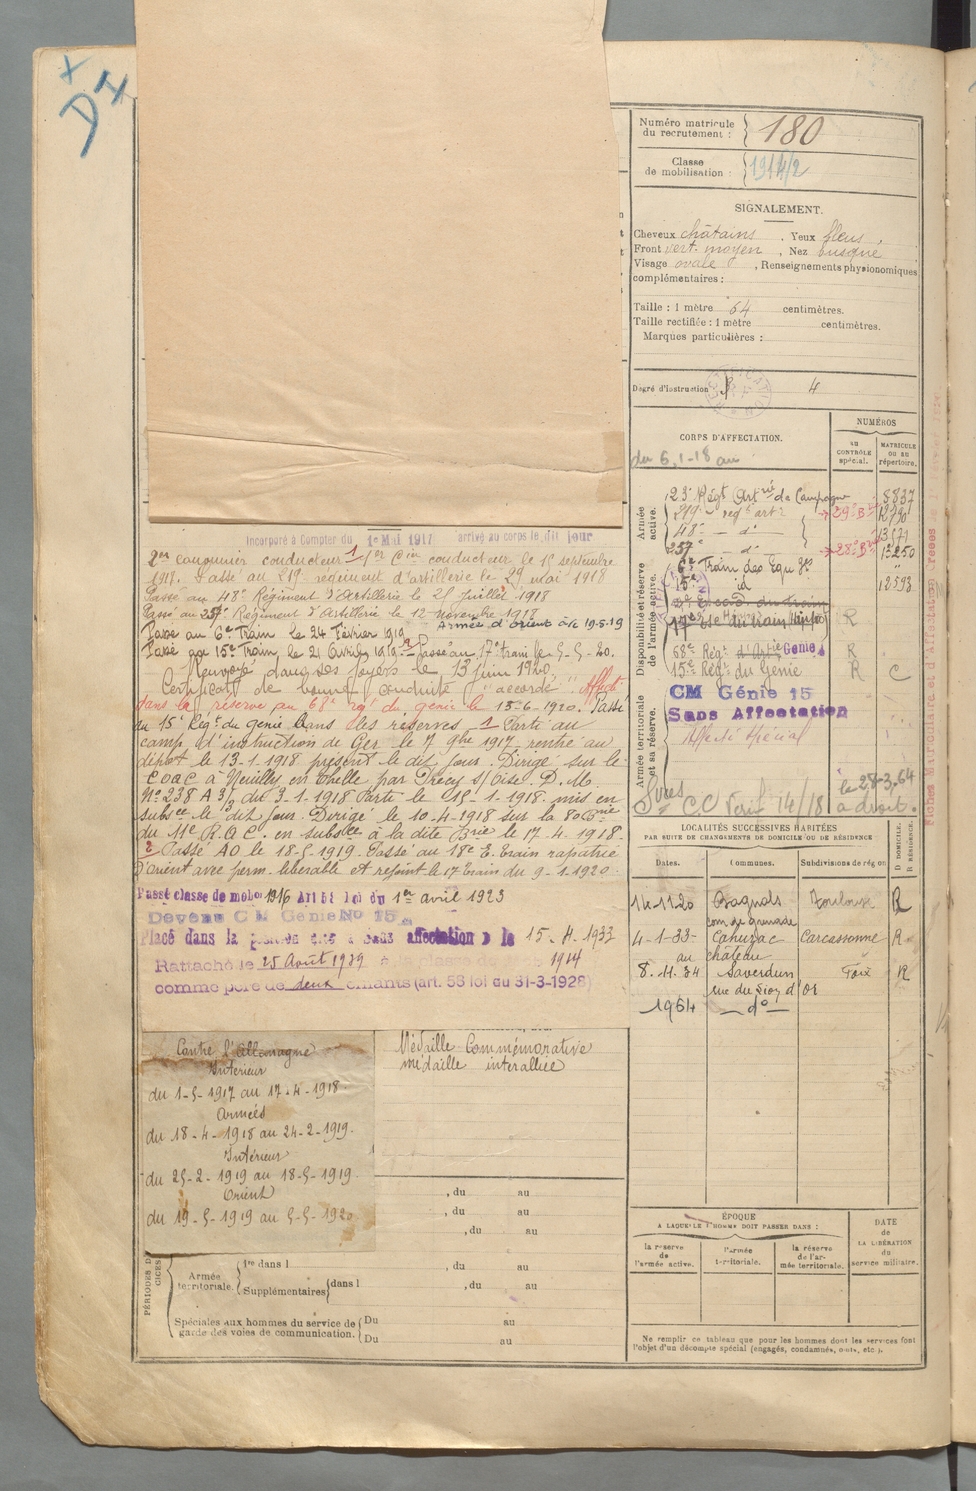 D
Numéro matricule
du recrutement : 180
Classe
de mobilisation : 1914/2
SIGNALEMENT.
Cheveux châtains . Yeux bleus .
Front vert. moyen , Nez busqué
Visage ovale , Renseignements physionomiques
complémentaires :
Taille : 1 mètre 64 centimètres.
Taille rectifiée : 1 mètre centimètres.
Marques particulières :
Degré d'instruction 4
CORPS D'AFFECTATION.
NUMÉROS
AU CONTRÔLE spécial.
MATRICULE OU AU répertoire.
du 6.1-18 au
Armée active.
23e Régt Artrie de Campagne 8837
219e regt artie 29e
48e d°
257e d° 28e 13250
Disponibilité et réserve de l'armée active.
6e Train des Equ
15e id 12593
R
68e Régt d'Artie Génie R
15e Régt du Génie R C
Armée territoriale et sa réserve.
CM Génie 15
Sans Affectation
Affecté Spécial
C.C 14/18
le 28-3.64
à droit.
Incorporé à Compter du 1er Mai 1917 arrivé au corps le dit jour
2e canonnier conducteur 1 conducteur le 15 septembre
Passé au 219 régiment d'artillerie le 29 mai 1918
Passé au 48e Régiment d'Artillerie le 25 Juillet 1918
Passé au 257e Régiment d'Artillerie le 12 novembre 1918
Passé au 6e Train le 24 Février 1919 Armée d'Orient 19-5-19
Passé au 15e Train le 21 Avril 1919 2 Passé au 17e train le 5-5-20.
Renvoyé dans ses foyers le 13 juin 1920
Certificat de bonne conduite "accordé" Affecté
dans la réserve au 68e rgt du génie le 13-6-1920. Passé
au 15e Régt du génie dans les réserves 1 Parti au
camp d'instruction de Ger le 7 9bre 1917, rentré au
dépôt le 13-1-1918 présent le dit jour. Dirigé sur le
C.O.A.C à Neuilly en Thelle par Précy s/Oise D.M
No 238 A 3/3 du 3-1-1918 Parti le 15-1-1918. mis en
subsce le dit jour Dirigé le 10-4-1918 sur la 80e Brie
du 11e R.A.C. en subsce à la dite Brie le 17.4.1918.
2 Passé AO le 18-5-1919. Passé au 18e E. train rapatrié
d'orient avec perm. libérable et rejoint le 17 train du 9-1-1920.
Passé classe de mobon 1916 Art 58 loi du 1er avril 1923
Devenu CM Génie No 15
Placé dans la affectation le 15.4.1933
Rattaché le 25 Août 1939 à la classe de 1914
comme père de deux enfants (art. 58 loi du 31-3-1928)
LOCALITÉS SUCCESSIVES HABITÉES
PAR SUITE DE CHANGEMENTS DE DOMICILE OU DE RÉSIDENCE
Dates. Communes. Subdivisions de région
D DOMICILE. R RÉSIDENCE.
14-11-20 Bagnols Toulouse R
con de grenade
4-1-33 Cahuzac Carcassonne R
au château
8.11.34 Saverdun Foix R
rue du Lion d'Or
1964 d°
Contre l'Allemagne
Intérieur
du 1-5-1917 au 17-4-1918
Armées
du 18-4-1918 au 24-2-1919.
Intérieur
du 25-2-1919 au 18-5-1919.
Orient
du 19-5-1919 au 5-5-1920
Médaille Commémorative
médaille interalliée
, du au
, du au
, du au
PÉRIODES D
CICES
Armée territoriale. 1re dans l , du au
Supplémentaires dans l , du au
Spéciales aux hommes du service de
garde des voies de communication.
Du au
Du au
ÉPOQUE
A LAQUELLE L'HOMME DOIT PASSER DANS :
la réserve de l'armée active.
l'armée territoriale.
la réserve de l'armée territoriale.
DATE de LA LIBÉRATION du service militaire.
Ne remplir ce tableau que pour les hommes dont les services font
l'objet d'un décompte spécial (engagés, condamnés, omis, etc.).